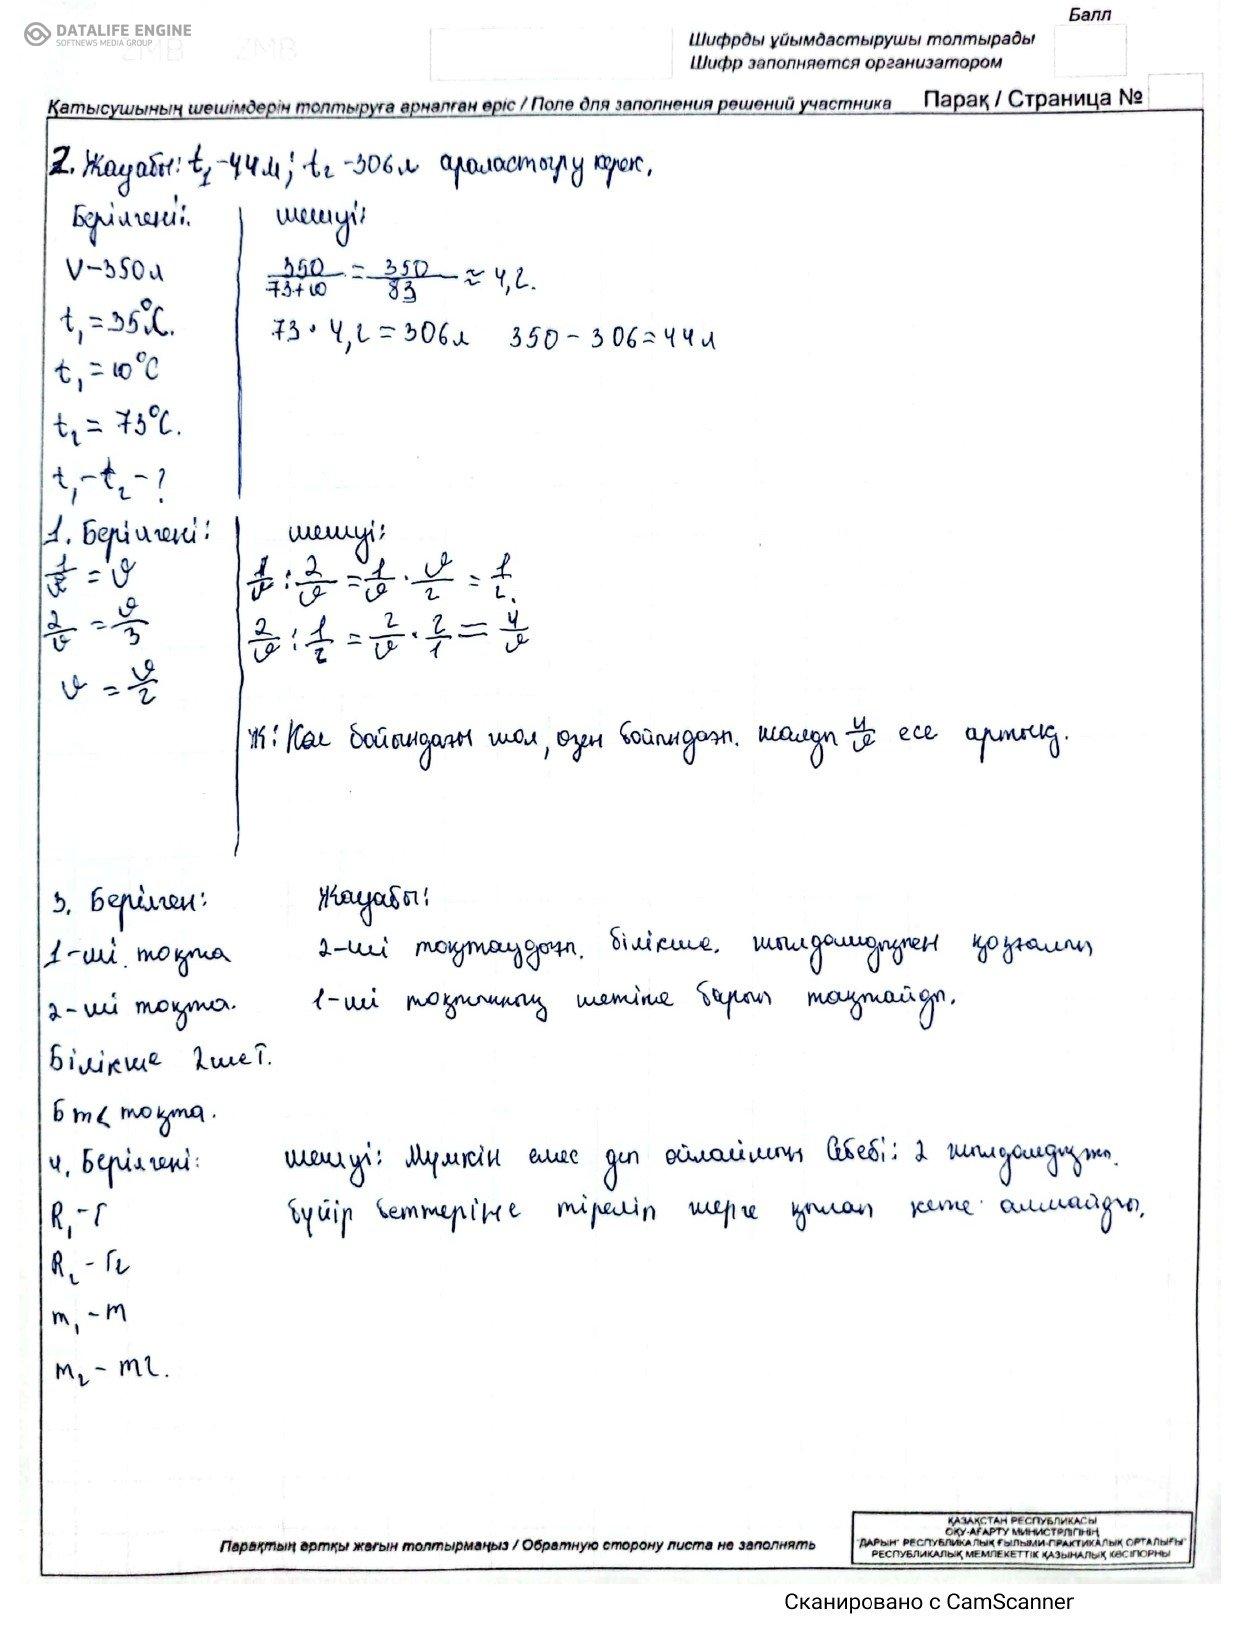 DATALIFE ENGINE
SOFTNEWS MEDIA GROUP
Балл
Шифрды ұйымдастырушы толтырады
Шифр заполняется организатором
Қатысушының шешімдерін толтыруға арналған өріс / Поле для заполнения решений участника
Парақ / Страница №
2. Жауабы: t₁ - 44л; t₂ - 306л араластыру керек.
Берілгені:
V - 350л
t₁ = 35°C.
t₁ = 10°C
t₂ = 73°C.
t₁ - t₂ - ?
шешуі:
350/73+10 = 350/83 ≈ 4,2.
73 · 4,2 = 306л 350 - 306 = 44л
1. Берілгені:
1/ϑ = ϑ
2/ϑ = ϑ/3
ϑ = ϑ/2
шешуі:
1/ϑ : 2/ϑ = 1/ϑ · ϑ/2 = 1/2.
2/ϑ : 1/2 = 2/ϑ · 2/1 = 4/ϑ
Ж: Көл бойындағы жол, өзен 4/ϑ есе артық.
3. Берілген:
1-ші тоқта
2-ші тоқта.
Білікше 2 шеті.
Бт< тоқта.
Жауабы:
2-ші білікше. жылдамдықпен қозғалып
1-ші шетіне барып тоқтайды.
4. Берілгені:
R₁ - r
R₂ - r2
m₁ - m
m₂ - m2.
шешуі: Мүмкін емес деп ойлаймын Себебі: 2
бүйір беттеріне тіреліп жерге құлап кете алмайды.
Парақтың артқы жағын толтырмаңыз / Обратную сторону листа не заполнять
ҚАЗАҚСТАН РЕСПУБЛИКАСЫ
ОҚУ-АҒАРТУ МИНИСТРЛІГІНІҢ
"ДАРЫН" РЕСПУБЛИКАЛЫҚ ҒЫЛЫМИ-ПРАКТИКАЛЫҚ ОРТАЛЫҒЫ"
РЕСПУБЛИКАЛЫҚ МЕМЛЕКЕТТІК ҚАЗЫНАЛЫҚ КӘСІПОРНЫ
Сканировано с CamScanner